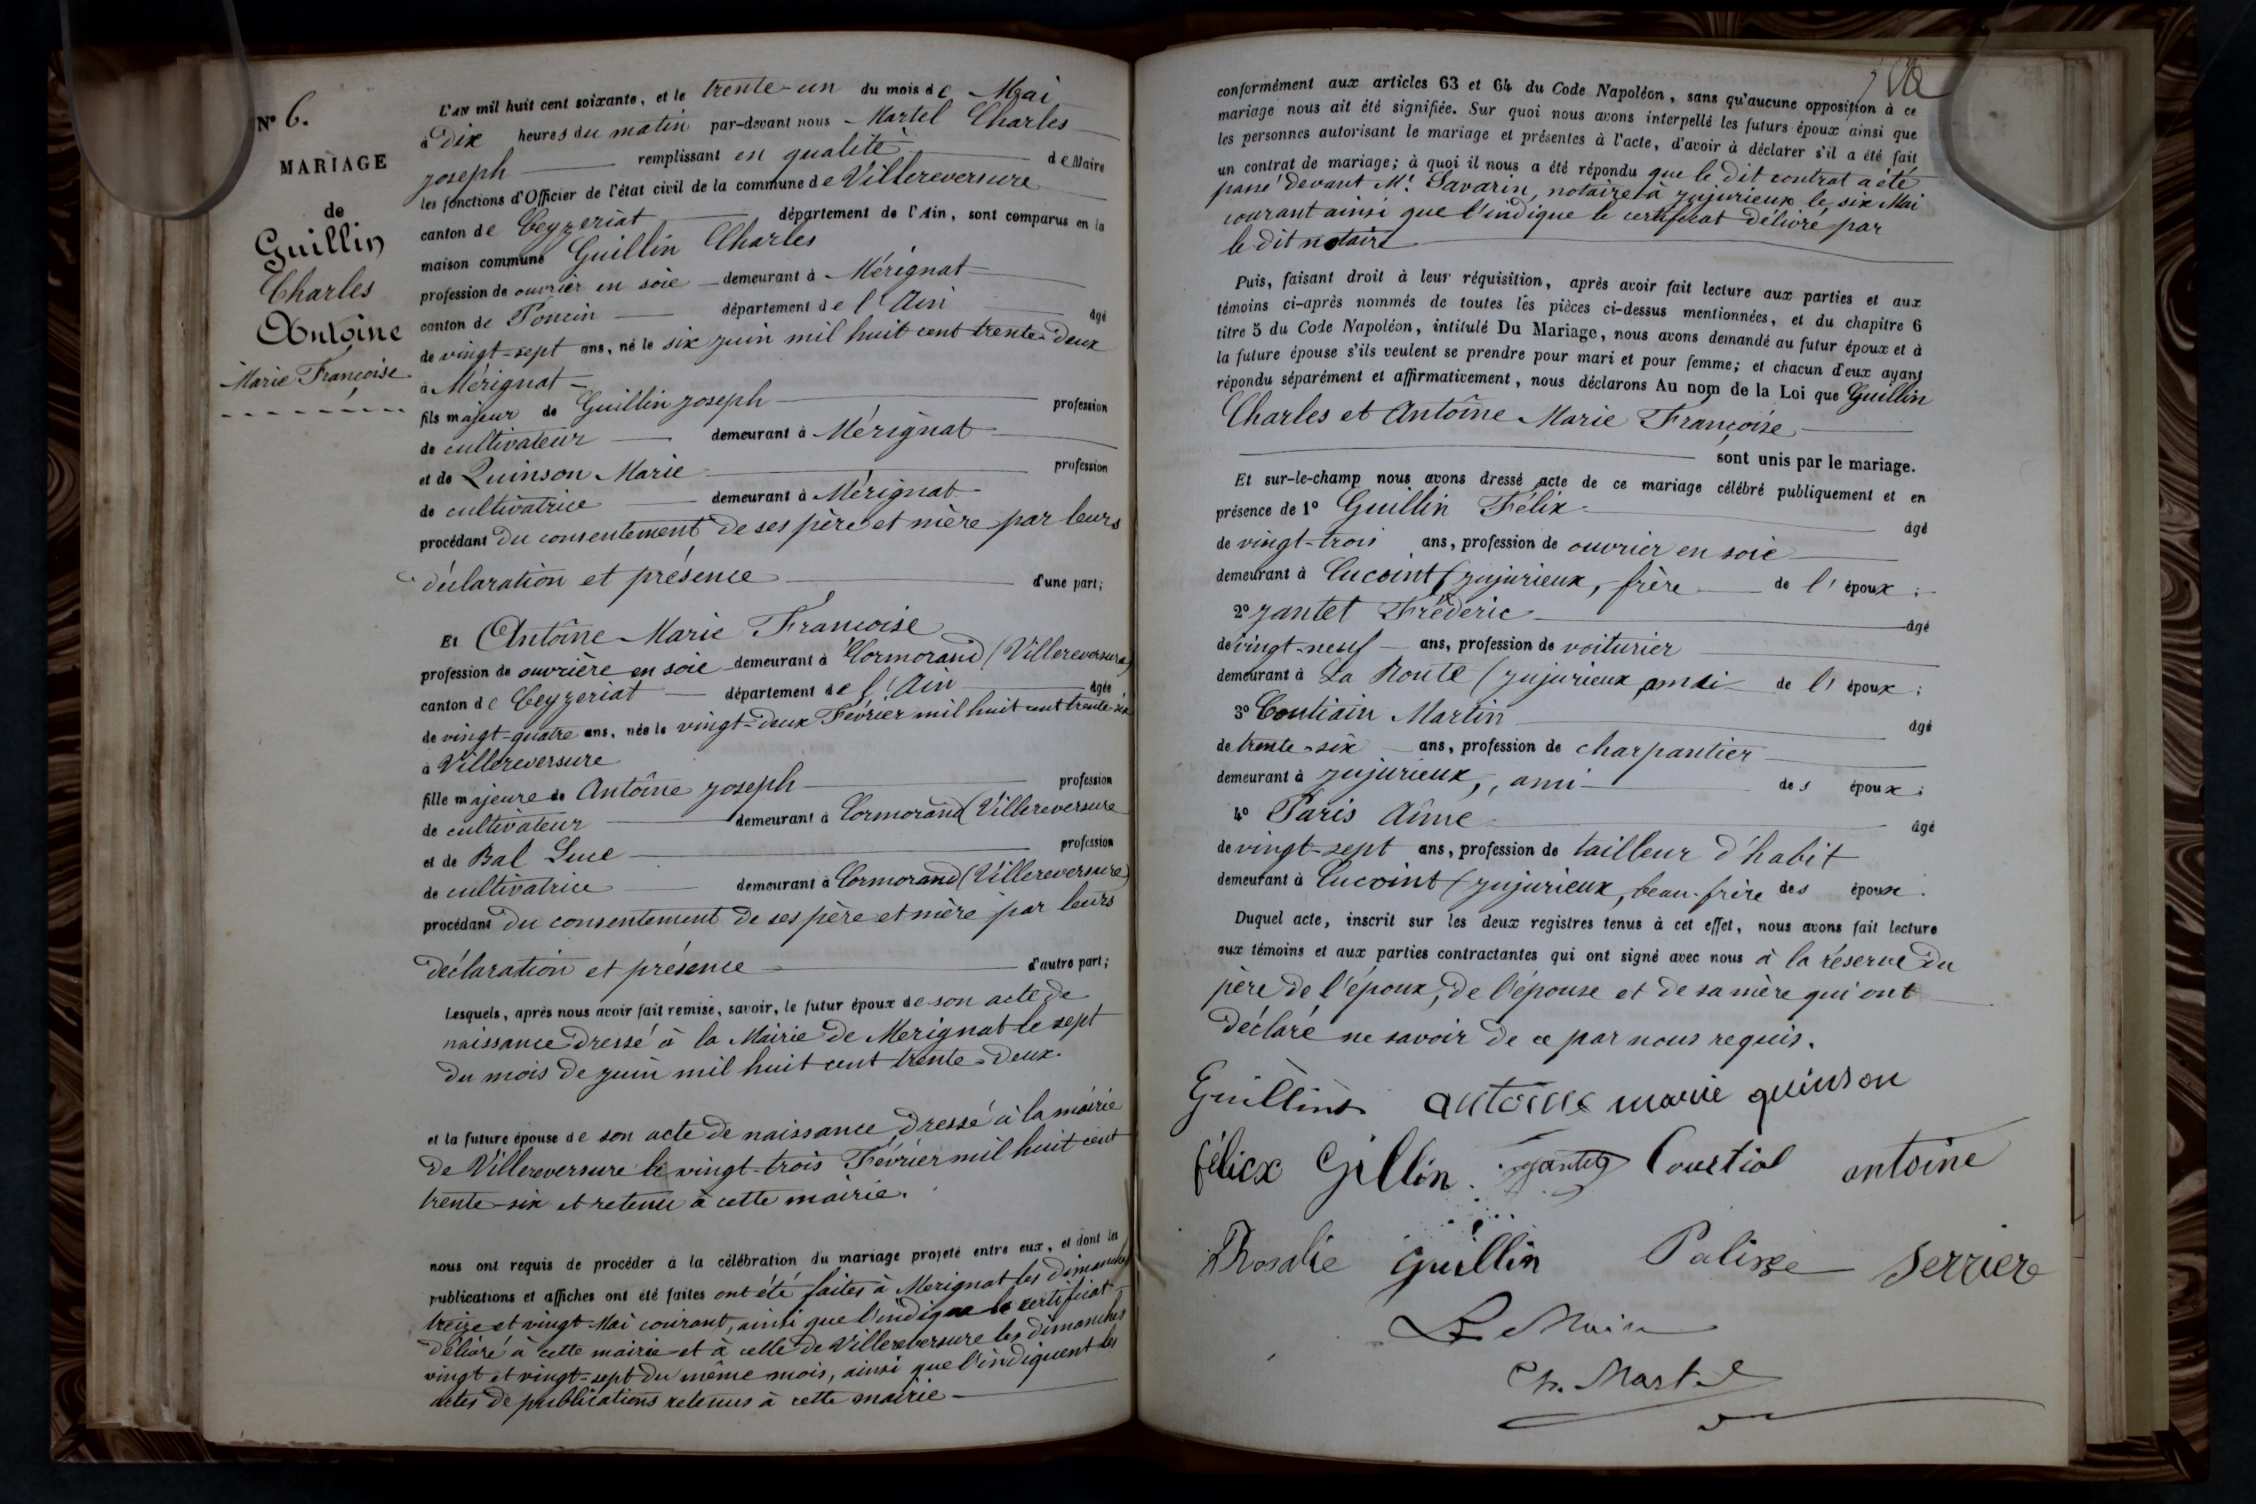 N° 6.
MARIAGE
de
Guillin
Charles
Antoine
Marie Françoise
L'an mil huit cent soixante, et le trente-un du mois de Mai
à dix heures du matin par-devant nous Martel Charles
joseph remplissant en qualité de Maire
les fonctions d'Officier de l'état civil de la commune de Villereversure
canton de Ceyzeriat département de l'Ain, sont comparus en la
maison commune Guillin Charles
profession de ouvrier en soie demeurant à Mérignat
canton de Poncin département de l'Ain âgé
de vingt-sept ans, né le six juin mil huit cent trente-deux
à Mérignat
fils majeur de Guillin joseph profession
de cultivateur demeurant à Mérignat
et de Quinson Marie profession
de cultivatrice demeurant à Mérignat
procédant du consentement de ses père et mère par leurs
déclaration et présence d'une part;
Et Antoîne Marie Francoise
profession de ouvrière en soie demeurant à Cormorand (Villereversure)
canton de Ceyzeriat département de l'Ain âgée
de vingt-quatre ans, née le vingt-deux Février mil huit cent trente-six
à Villereversure
fille majeure de Antoîne joseph profession
de cultivateur demeurant à Cormorand (Villereversure
et de Bal Luce profession
de cultivatrice demeurant à Cormorand (Villereversure)
procédant du consentement de ses père et mère par leurs
déclaration et présence d'autre part;
Lesquels, après nous avoir fait remise, savoir, le futur époux de son acte de
naissance dressé à la Mairie de Merignat le sept
du mois de juin mil huit cent trente-deux.
et la future épouse de son acte de naissance dressé à la mairie
de Villereversure le vingt-trois Février mil huit cent
trente-six et retenu à cette mairie.
nous ont requis de procéder à la célébration du mariage projeté entre eux, et dont les
publications et affiches ont été faites ont été faites à Merignat les dimanches
treize et vingt Mai courant, ainsi que l'indique le certificat
délivré à cette mairie et à celle de Villereversure les dimanches
vingt et vingt-sept du même mois, ainsi que l'indiquent les
actes de publications retenus à cette mairie
conformément aux articles 63 et 64 du Code Napoléon, sans qu'aucune opposition à ce
mariage nous ait été signifiée. Sur quoi nous avons interpellé les futurs époux ainsi que
les personnes autorisant le mariage et présentes à l'acte, d'avoir à déclarer s'il a été fait
un contrat de mariage; à quoi il nous a été répondu que le dit contrat a été
passé devant Mt. Savarin, notaire à jujurieux le six Mai
courant ainsi que l'indique le certificat délivré par
le dit notaire
Puis, faisant droit à leur réquisition, après avoir fait lecture aux parties et aux
témoins ci-après nommés de toutes les pièces ci-dessus mentionnées, et du chapitre 6
titre 5 du Code Napoléon, intitulé Du Mariage, nous avons demandé au futur époux et à
la future épouse s'ils veulent se prendre pour mari et pour femme; et chacun d'eux ayant
répondu séparément et affirmativement, nous déclarons Au nom de la Loi que Guillin
Charles et Antoîne Marie Françoise
sont unis par le mariage.
Et sur-le-champ nous avons dressé acte de ce mariage célébré publiquement et en
présence de 1° Guillin Félix âgé
de vingt-trois ans, profession de ouvrier en soie
demeurant à Cucoint (jujurieux, frère de l'époux;
2° jantet Fréderic âgé
de vingt-neuf ans, profession de voiturier
demeurant à La Route (jujurieux, ami de l'époux;
3° Coutiain Martin âgé
de trente-six ans, profession de charpantier
demeurant à jujurieux, ami des époux;
4° Paris Aîme âgé
de vingt-sept ans, profession de tailleur d'habit
demeurant à Cucoint (jujurieux, beau-frère des époux.
Duquel acte, inscrit sur les deux registres tenus à cet effet, nous avons fait lecture
aux témoins et aux parties contractantes qui ont signé avec nous à la réserve du
père de l'époux, de l'épouse et de sa mère qui ont
déclaré ne savoir de ce par nous requis.
Guillins antoine marie quinson
félicx Gillin. jantet Coustial antoine
Rosalie Guillin Serriere
Le Maire
Ch. Martel